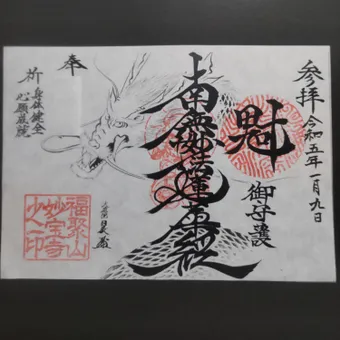 参拝 令和五年一月九日
魁
御守護
南無妙法蓮華経
奉
祈 身体健全
心願成就
福聚山
妙宝寺